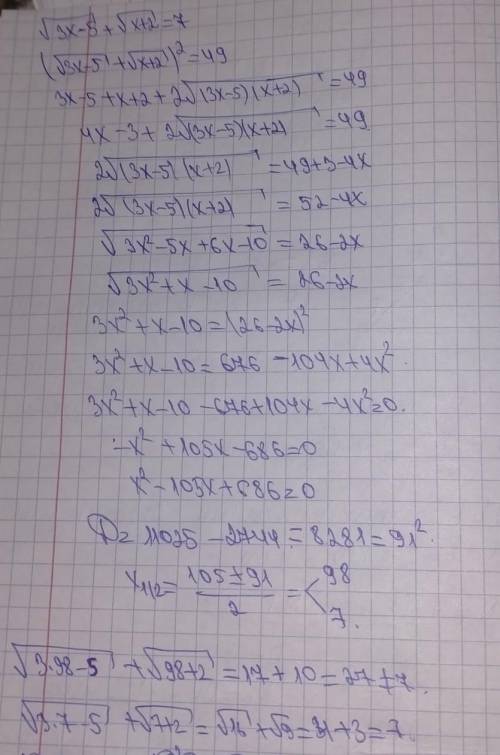 √(3x-5) + √(x+2) = 7
(√(3x-5) + √(x+2))² = 49
3x-5+x+2+2√((3x-5)(x+2)) = 49
4x-3+2√((3x-5)(x+2)) = 49
2√((3x-5)(x+2)) = 49+3-4x
2√((3x-5)(x+2)) = 52-4x
√(3x²-5x+6x-10) = 26-2x
√(3x²+x-10) = 26-2x
3x²+x-10=(26-2x)²
3x²+x-10=676-104x+4x²
3x²+x-10-676+104x-4x²=0.
-x²+105x-686=0
x²-105x+686=0
D=11025-2744=8281=91².
x1/2= (105±91)/2 = < 98 7.
√(3·98-5) + √(98+2) = 17+10=27≠7.
√(3·7-5) + √(7+2) = √16+√9=4+3=7.